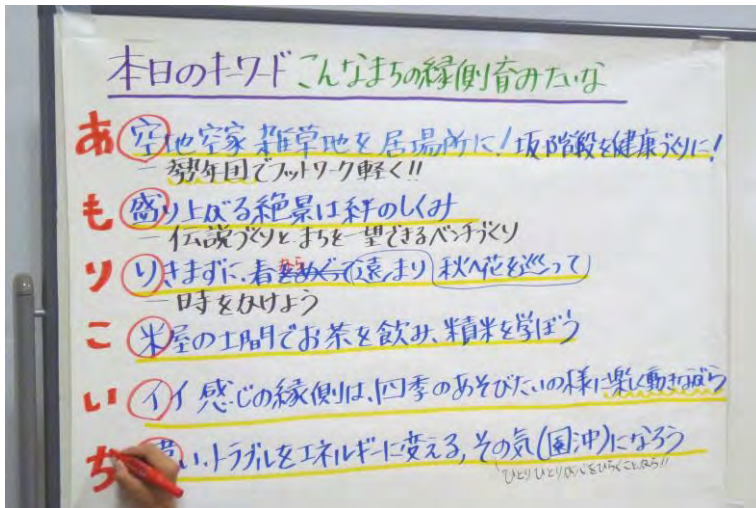 本日のキーワード こんなまちの縁側育みたいな
あ 空地空家 雑草地を居場所に! 坂階段を健康づくりに!
― 勢年団でフットワーク軽く!!
も 盛り上がる絶景は絆のしくみ
― 伝説づくりと、まちを一望できるベンチづくり
り りきまずに、春から遠まわり 秋へ花を巡って
― 時をかけよう
こ 米屋の土間でお茶を飲み、精米を学ぼう
い イイ感じの縁側は、四季のあそびたいの様に楽しく動きながら
ち い、トラブルをエネルギーに変える、その気(園沖)になろう
ひとりひとりが心をひらくことなら!!